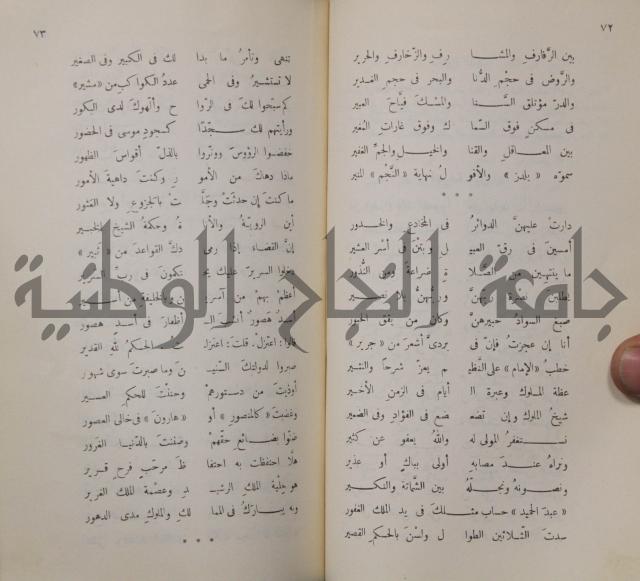 ٧٢
بين الرَّفارِفِ والمشَا رِفِ والزَّخارِفِ والحرير
والرَّوض فى حجْمِ الدُّنا والبحر فى حجمِ الغدير
والدرّ مؤتلق السَّنا والمسْك فيَّاحَ العبير
فى مسكنٍ فوق السِّما ك وفوق غاراتِ المُغير
بين المعاقلِ والقنا والخيلِ والجمِّ الغفير
سموْه « يلدز » والأفو لُ نهاية « النَّجْمِ » المنير
* * *
دارت عليهنَّ الدوائرُ فى المخادعِ والخدور
أمسين فى رقِّ العبيـ ـل وبتْنَ فى أسْر العشير
ما ينتهين من الصَّلا ة ضراعةً ومن النُّذور
يطلبن نصرة ربِّهنَّ وربُّهنَّ بلا نصير
صبغ السوادُ حبيرهنَّ وكان من يقق الحبور
أنا إن عجزتُ فإن فى بردىَّ أشعرَ من « جرير »
خطبُ « الإمام » على النَّظيـ م يعزّ شرحاً والنثير
عظة الملوك وعبرة الـ أيام فى الزمن الأخير
شيخُ الملوك وإن تضعـ ضع فى الفؤاد وفى الضمير
نستغفرُ المولى له واللهُ يعفو عن كثير
ونراهُ عندَ مصابهِ أولى بباكٍ أو عذير
ونصونهُ ونجلّهُ بين الشَّماتةِ والنكير
« عبدَ الحميد » حساب مثلكَ فى يدِ الملك الغفور
سدتَ الثّلاثينَ الطوا لَ ولسْنَ بالحكم القصير
٧٣
تنهى وتأمرُ ما بدا لكَ فى الكبير وفى الصغير
لا تستشيرُ وفى الحمى عددُ الكواكب من « مشير »
كم سبّحوا لكَ فى الرَّوا ح وألّهوكَ لدى البكور
ورأيتهم لك سجّدًا كسجودِ موسى فى الحضور
خفضوا الرؤوسَ ووتّروا بالذلّ أقواسَ الظهور
ماذا دهاك من الأمو ر وكنتَ داهيةَ الأمور
ما كنتَ إن حدثتْ وجلَّتْ بالجزوع ولا العثور
أين الرويّةُ والأنا ةُ وحكمةُ الشيخ الخبير
إنَّ القضاءَ إذا رمى دكَّ القواعدَ من « ثَبير »
دخلوا السريرَ عليكَ يحـ ـتكمون فى ربّ السرير
أعظم بهمْ من آسرين وبالخليفة من أسير
أسدٌ هصورٌ أنشبَ الـ أظفارَ فى أسدٍ هصور
قالوا: اعتزلْ. قلتَ: اعتزلتُ الحكمُ للهِ القدير
صبروا لدولتكَ السّنيـ ن وما صبرتَ سوى شهور
أوذيتَ من دستورهمْ وحننْتَ للحكم العسير
وغضبتَ « كالمنصور » أو « هارونَ » فى خالى العصور
ضنّوا بضائعِ حقّهمْ وضننتَ بالدّنيا الغرور
هلّا احتفظتَ به احتفا ظَ مرحّبٍ فرحٍ قرير
هو حلْيةُ الملكِ الرشيـ د وعصْمةُ الملك الغرير
وبه يباركُ فى المما لك والملوكِ مدى الدهور
* * *
جامعة النجاح الوطنية